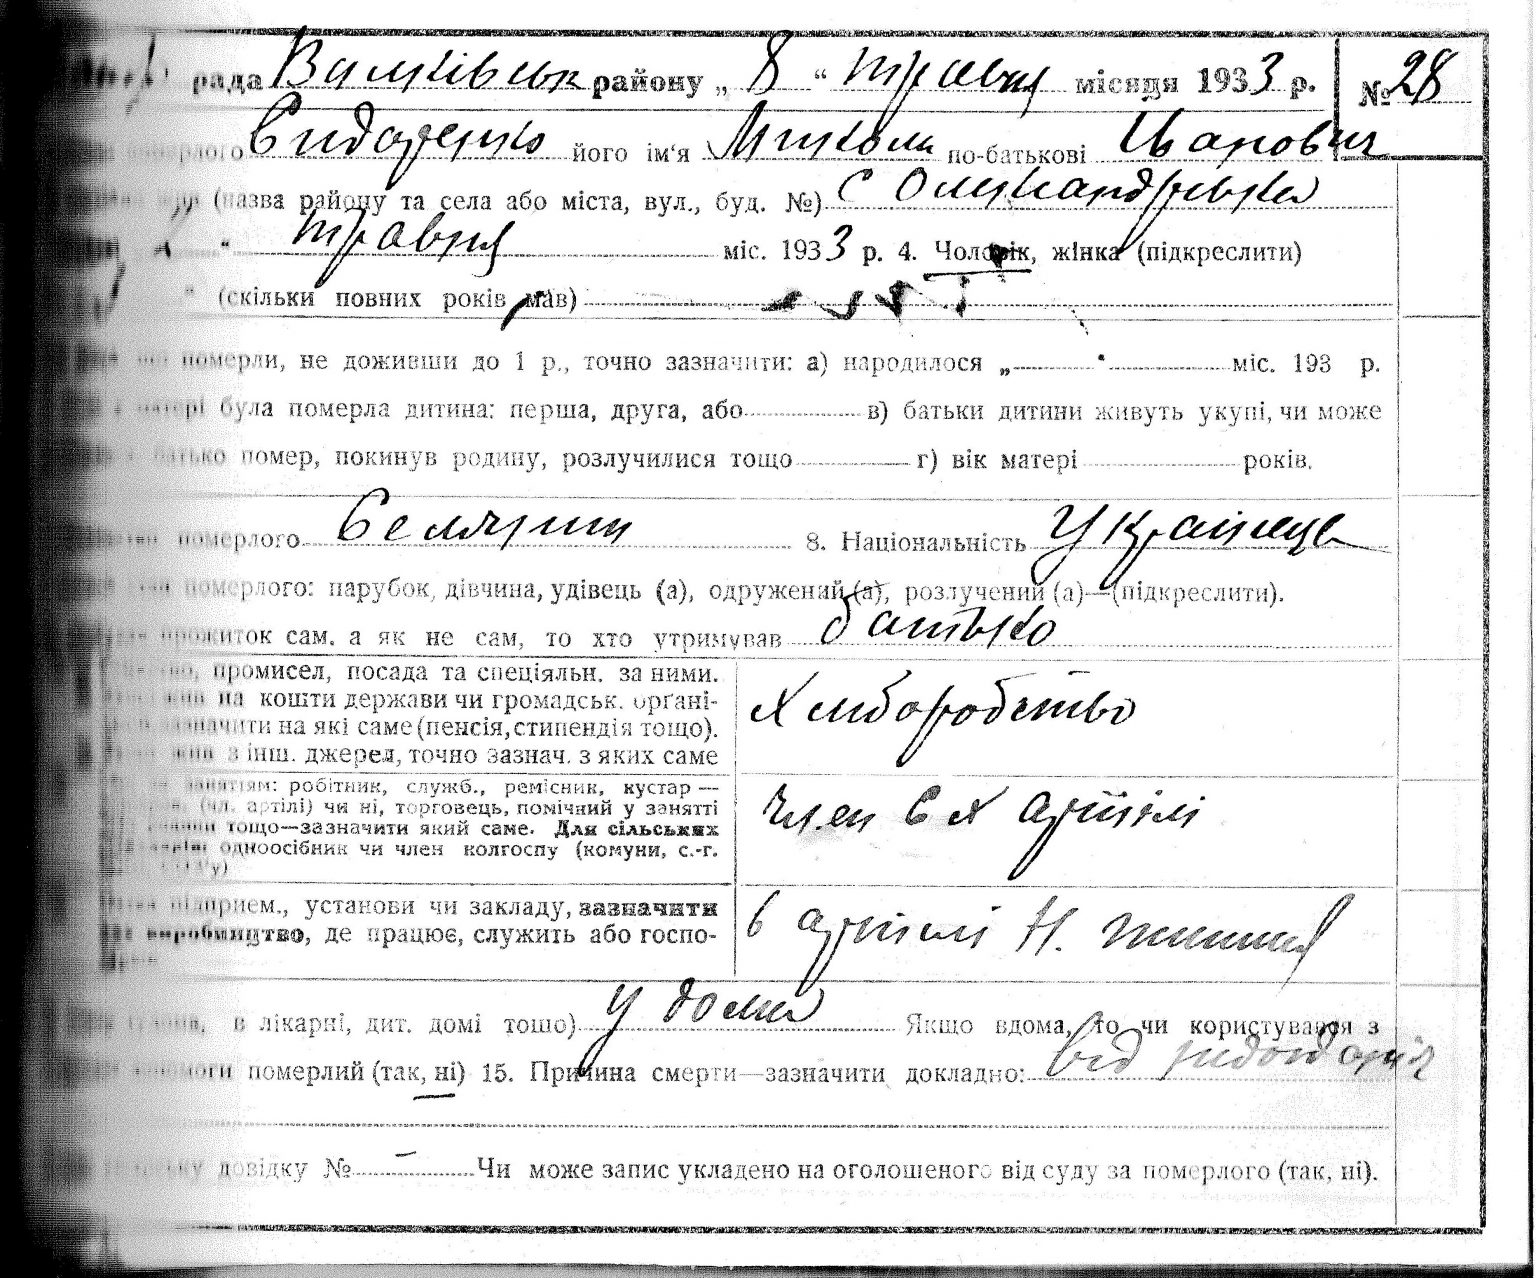 рада Валківськ району „ 8 “ травня місяця 1933 р. № 28
його ім'я Микола по-батькові Іванович
(назва району та села або міста, вул., буд. №) с Олександрівка
“ травня міс. 1933 р. 4. Чоловік, жінка (підкреслити)
“ (скільки повних років мав)
померли, не доживши до 1 р., точно зазначити: а) народилося „ “ міс. 193 р.
матері була померла дитина: перша, друга, або в) батьки дитини живуть укупі, чи може
батько помер, покинув родину, розлучилися тощо г) вік матері років.
померлого Селянин 8. Національність Українець
померлого: парубок, дівчина, удівець (а), одружений (а), розлучений (а)—(підкреслити).
прожиток сам, а як не сам, то хто утримував батько
промисел, посада та спеціяльн. за ними.
на кошти держави чи громадськ. органі-
зазначити на які саме (пенсія, стипендія тощо).
жив з інш. джерел, точно зазнач. з яких саме
Хліборобство
заняттям: робітник, служб., ремісник, кустар —
(чл. артілі) чи ні, торговець, помічний у занятті
тощо—зазначити який саме. Для сільських
одноосібник чи член колгоспу (комуни, с.-г.
член с х артілі
підприєм., установи чи закладу, зазначити
виробництво, де працює, служить або госпо-
в артілі Н.
в лікарні, дит. домі тощо) у дома Якщо вдома, то чи користувався з
допомоги померлий (так, ні) 15. Причина смерти—зазначити докладно: від недоїдання
довідку № – Чи може запис укладено на оголошеного від суду за померлого (так, ні).